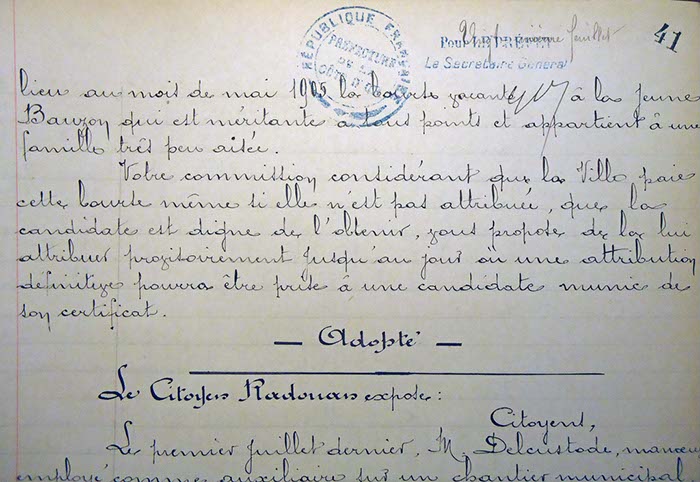 feuillet
41
Pour LE PRÉFET
Le Secrétaire Général
RÉPUBLIQUE FRANÇAISE
PRÉFECTURE
DE LA
CÔTE D'OR
lieu au mois de mai 1905 la bourse vacante à la jeune
Bauzon qui est méritante à tous points et appartient à une
famille très peu aisée.
Votre commission considérant que la Ville paie
cette bourse même si elle n'est pas attribuée, que la
candidate est digne de l'obtenir, vous propose de la lui
attribuer provisoirement jusqu'au jour où une attribution
définitive pourra être prise à une candidate munie de
son certificat.
— Adopté —
Le Citoyen Radouan expose:
Citoyens,
Le premier juillet dernier, M. Delcustode, manoeu
employé comme auxiliaire sur un chantier municipal